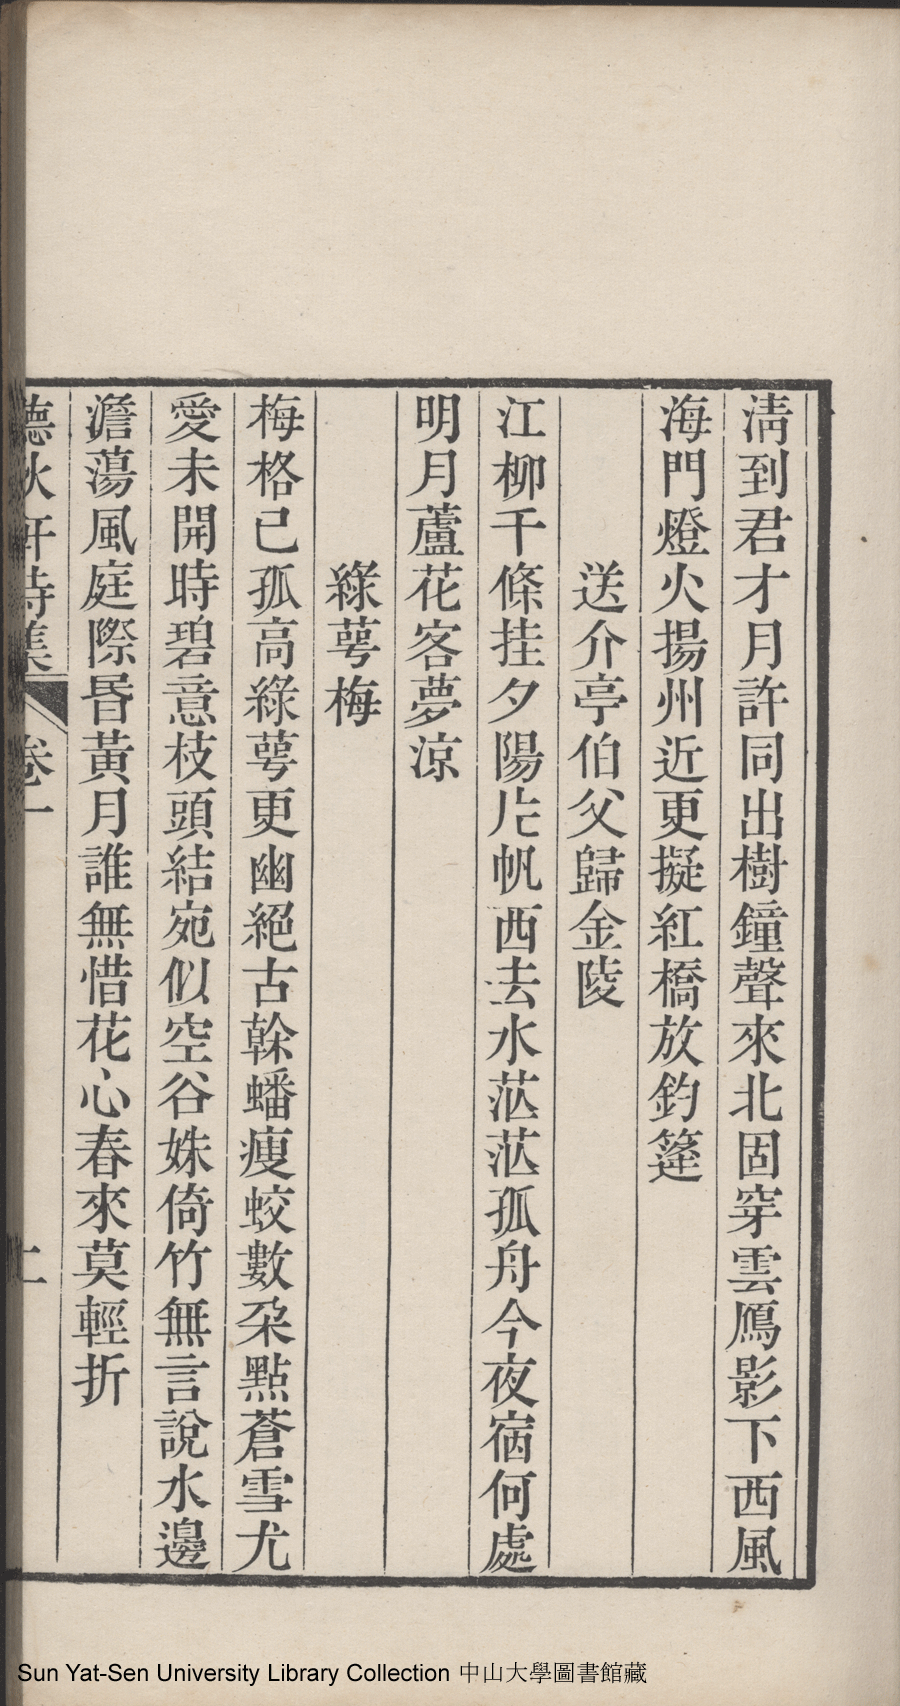 淸到君才月許同出樹鐘聲來北固穿雲鴈影下西風
海門燈火揚州近更擬紅橋放釣篷
送介亭伯父歸金陵
江柳千條挂夕陽片帆西去水茫茫孤舟今夜宿何處
明月蘆花客夢涼
綠萼梅
梅格已孤高綠萼更幽絕古榦蟠瘦蛟數朶點蒼雪尤
愛未開時碧意枝頭結宛似空谷姝倚竹無言說水邊
澹蕩風庭際昏黃月誰無惜花心春來莫輕折
秋軒詩集 卷一
Sun Yat-Sen University Library Collection 中山大學圖書館藏